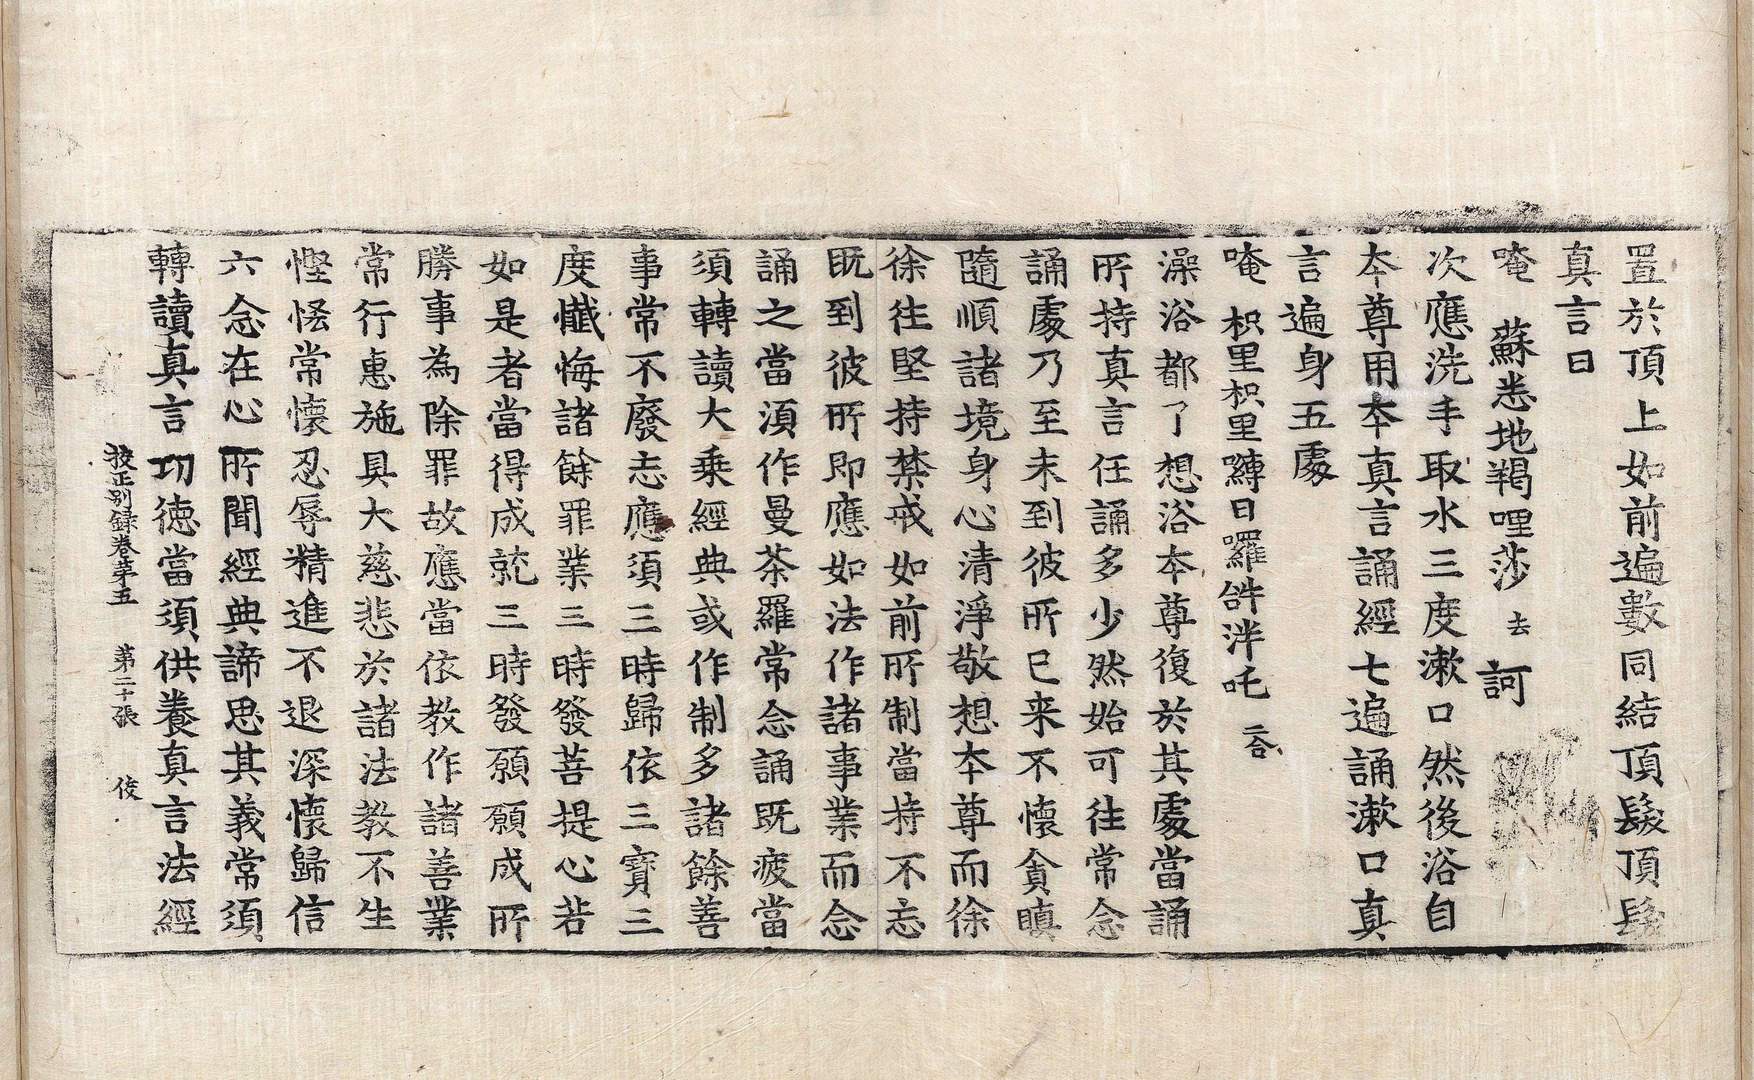 置於頂上如前遍數同結頂髮頂髮
真言曰
唵 蘇悉地羯哩莎去訶
次應洗手取水三度漱口然後浴自
夲尊用夲真言誦經七遍誦漱口真
言遍身五處
唵 枳里枳里嚩日囉𤙖泮吒二合
澡浴都了想浴夲尊復於其處當誦
所持真言任誦多少然始可往常念
誦處乃至未到彼所已来不懷貪瞋
隨順諸境身心清淨敬想夲尊而徐
徐往堅持禁戒如前所制當持不忘
既到彼所即應如法作諸事業而念
誦之當湏作曼荼羅常念誦既疲當
須轉讀大乗經典或作制多諸餘善
事常不廢忘應須三時歸依三寶三
度懺悔諸餘罪業三時發菩提心若
如是者當得成就三時發願願成所
勝事為除罪故應當依教作諸善業
常行惠施具大慈悲於諸法教不生
慳悋常懷忍辱精進不退深懷歸信
六念在心所聞經典諦思其義常須
轉讀真言功徳當須供養真言法經
挍正別録卷苐五 第二十張 俊